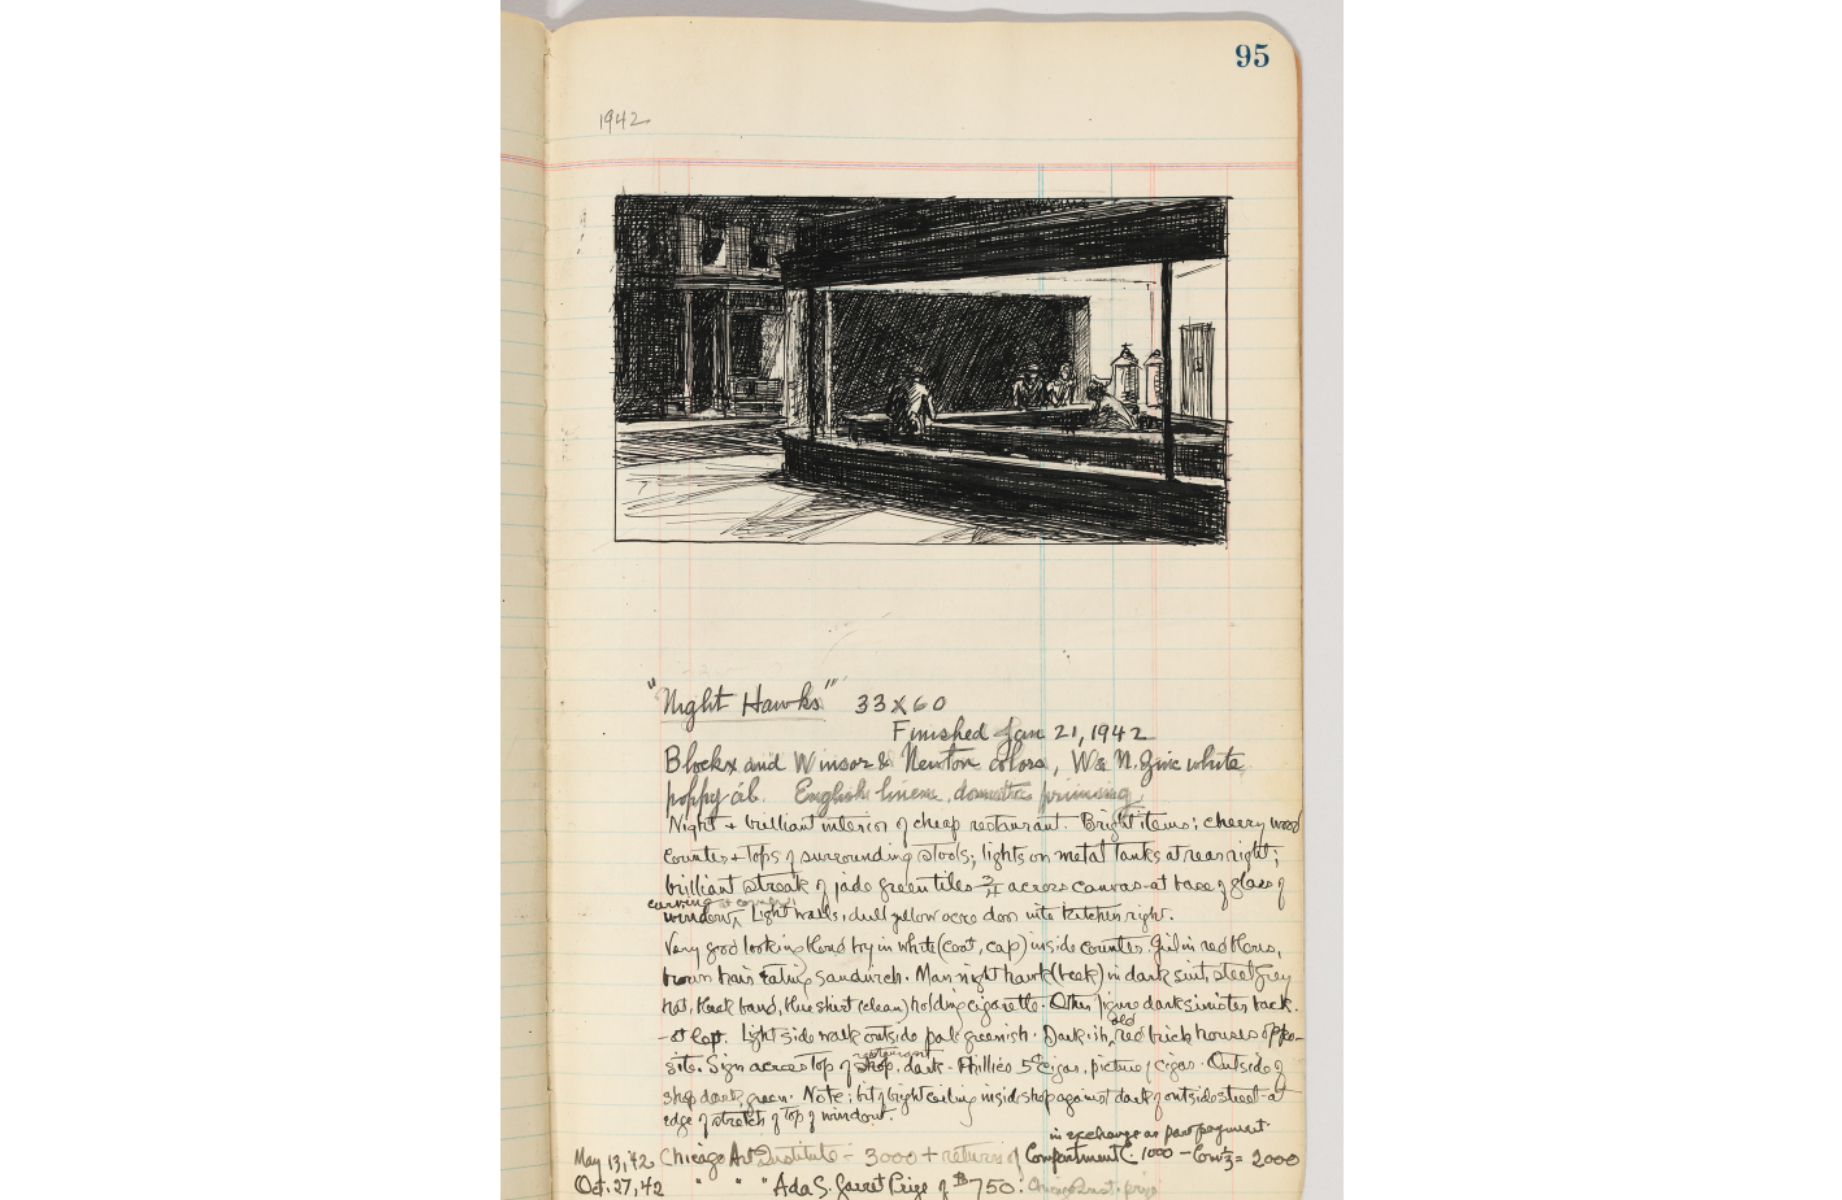 95
1942
"Night Hawks" 33 x 60
Finished Jan 21, 1942
Blockx and Winsor & Newton colors, W & N. Zinc white
poppy oil. English linen, domestic priming
Night + brilliant interior of cheap restaurant. Bright items: cherry wood
counter + tops of surrounding stools; lights on metal tanks at rear right;
brilliant streak of jade green tiles 3/4 across canvas - at base of glass of
window curving at corner. Light walls, dull yellow ocre door into kitchen right.
Very good looking blond boy in white (coat, cap) inside counter. Girl in red blouse,
brown hair eating sandwich. Man night hawk (beak) in dark suit, steel grey
hat, black band, blue shirt (clean) holding cigarette. Other figure dark sinister back.
- at left. Light side walk outside pale greenish. Darkish old red brick houses oppo-
site. Sign across top of shop restaurant, dark - Phillies 5¢ cigar, picture of cigar. Outside of
shop dark, green. Note: bit of bright ceiling inside shop against dark of outside street - at
edge of stretch of top of window.
in exchange as part payment.
May 13, '42 Chicago Art Institute - 3000 + return of Compartment C. 1000 - Com 1/3 = 2000
Oct. 27, 42 " " " Ada S. Garret Prize of $750.